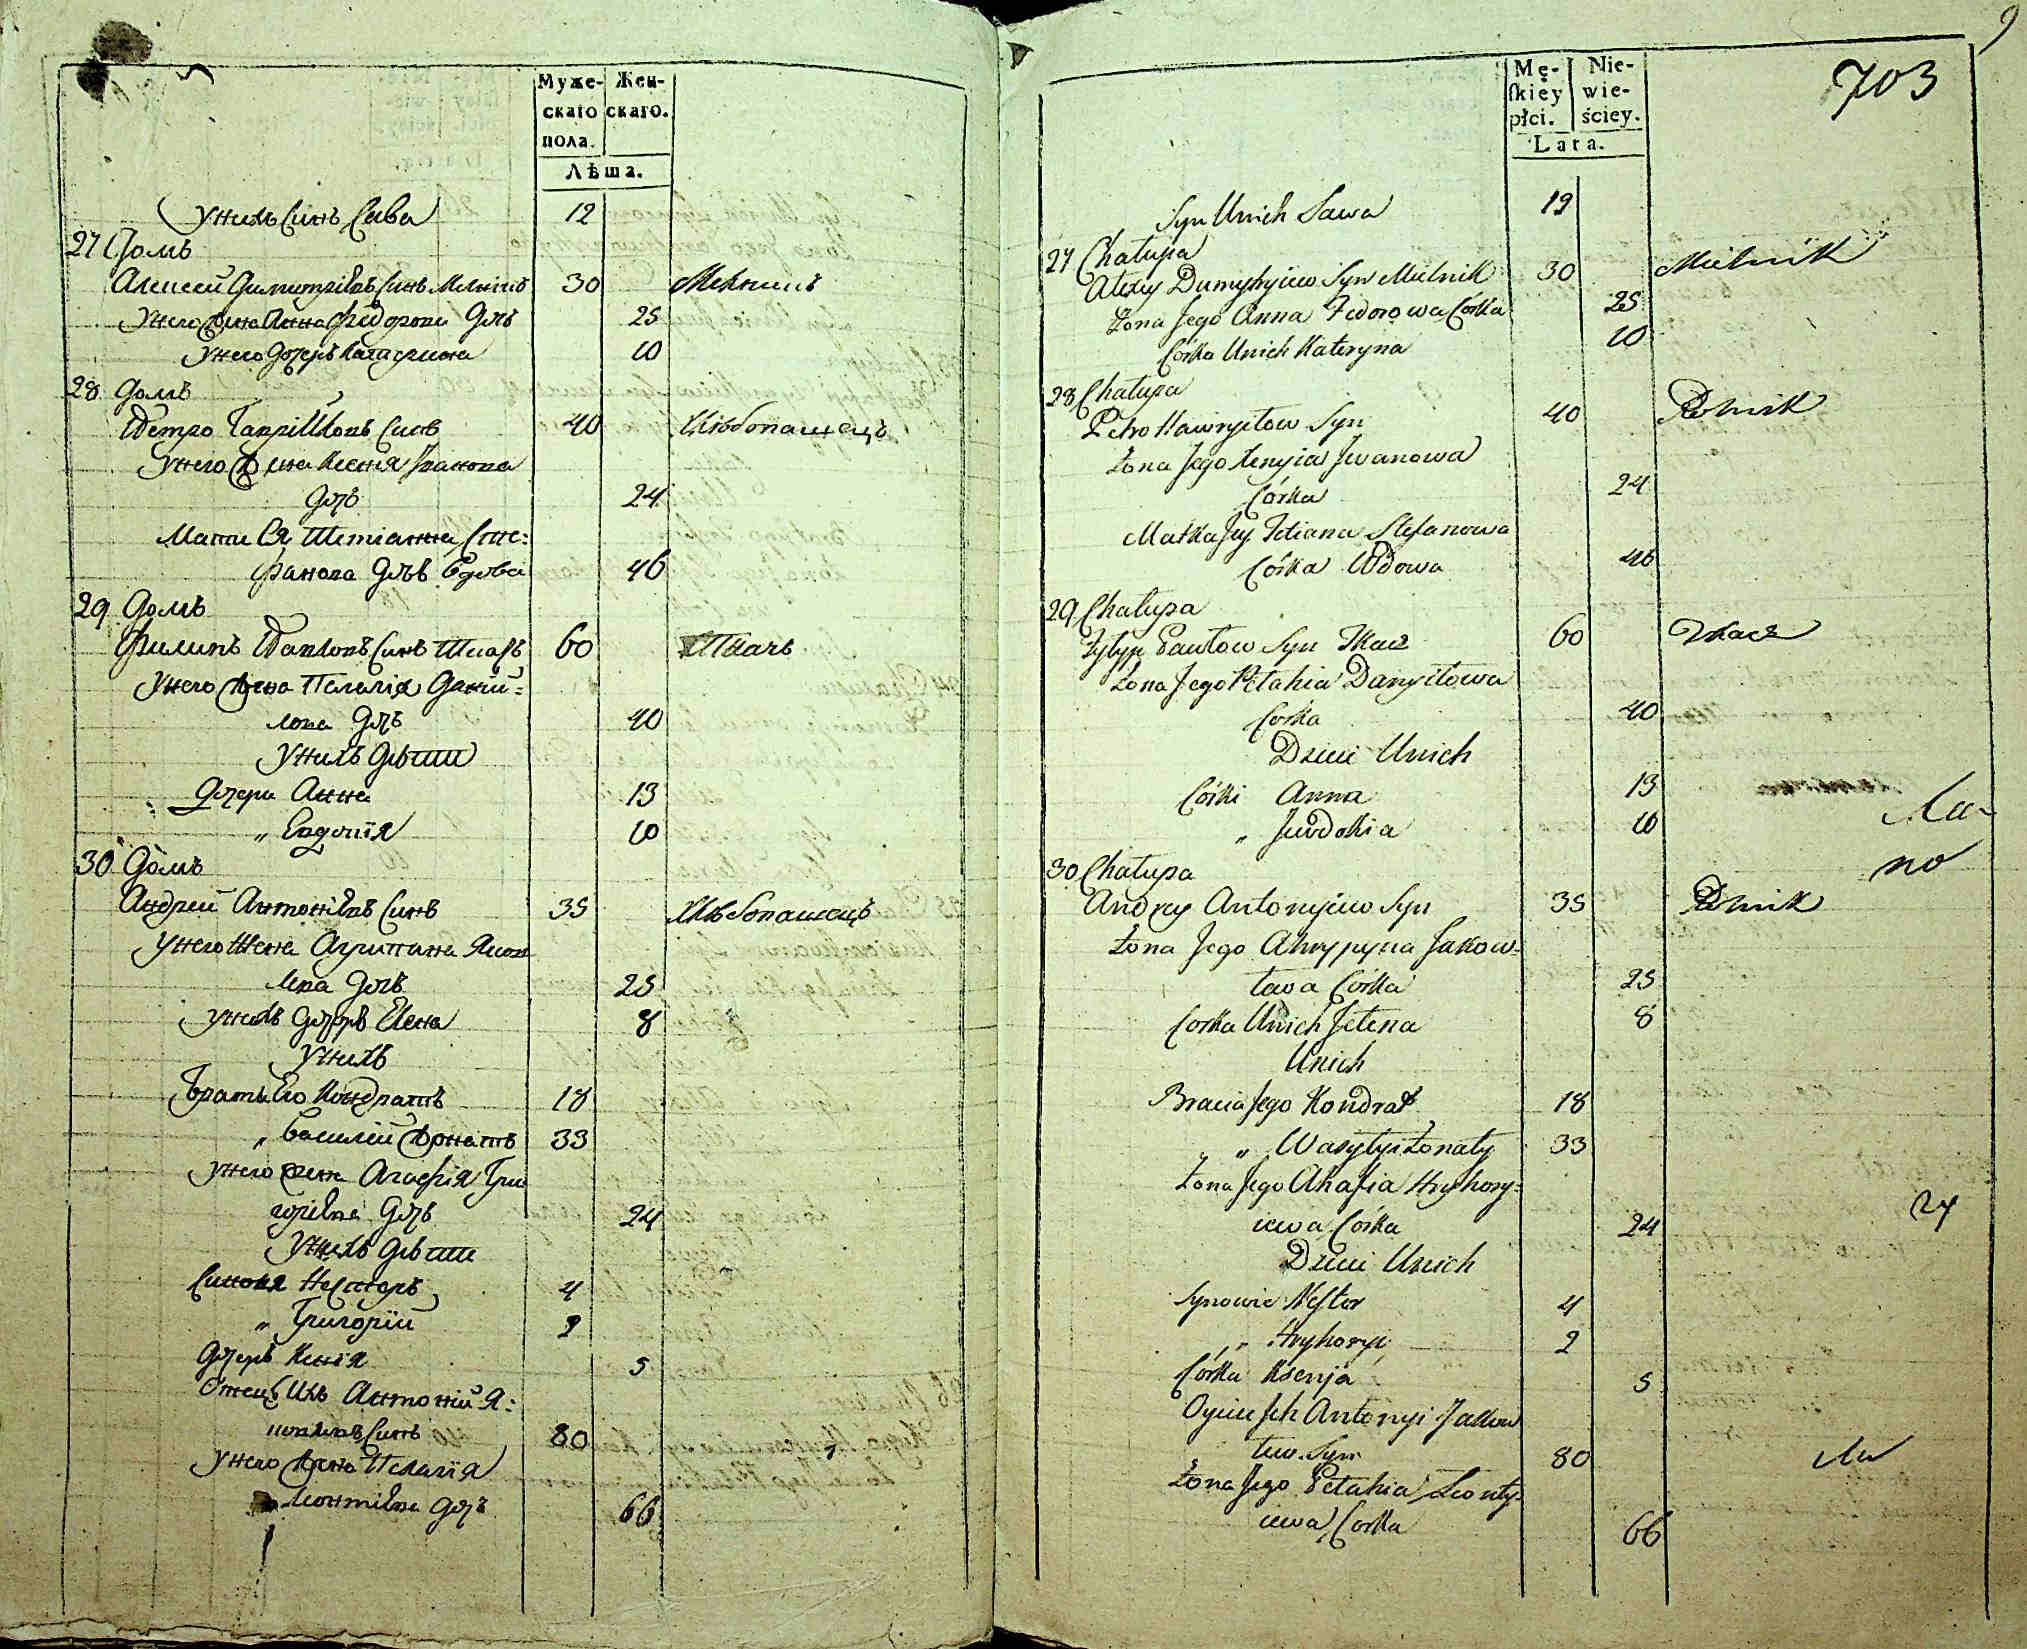 Муже-
скаго
пола.
Жен-
скаго.
Лѣта.
Унихъ Синъ Сава 12
27 Домъ
Алексей Димитріевъ Синъ Мелникъ 30 Мелникъ
Унего Жена Анна Федорова Дочь 25
Унего Дочеръ Катагрина 10
28 Домъ
Петро Гаврііловъ Синъ 40 Хлѣбопашецъ
Унего Жена Ксенія Іванова
Дочь 24
Мати Ея Тетіанна Сте=
фанова Дочь Вдова 46
29 Домъ
Филипъ Павловъ Синъ Ткачъ 60 Ткачъ
Унего Жена Пелагія Даній=
лова Дочь 40
Унихъ Дѣти
Дочери Анна 13
" Евдокія 10
30 Домъ
Андрей Антоніевъ Синъ 35 Хлѣбопашецъ
Унего Жена Агрипина Яков
лева Дочь 25
Унихъ Дочеръ Елена 8
Унихъ
Братъ Его Кондратъ 18
" Василій Жонатъ 33
Унего Жена Агафія Гри
горіевна Дочь 24
Унихъ Дѣти
Синовя Несторъ 4
" Григорій 2
Дочеръ Ксенія 5
Отецъ Ихъ Антоній Я=
ковлевъ Синъ 80
Унего Жена Пелагія
Леонтіевна Дочь 66
9
703
Mę-
skiey
płci.
Nie-
wie-
ściey.
Lata.
Syn Unich Sawa 12
27 Chałupa
Alexy Dymytryiew Syn Mielnik 30 Mielnik
Żona Jego Anna Fedorowa Córka 25
Córka Unich Kateryna 10
28 Chałupa
Petro Hawryłow Syn 40 Rolnik
Żona Jego Xenyia Iwanowa
Córka 24
Matka Jey Tetiana Stefanowa
Córka Wdowa 46
29 Chałupa
Fylyp Pawłow Syn Tkacz 60 Tkacz
Żona Jego Pełahia Danyiłowa
Corka 40
Dzieci Unich
Córki Anna 13
" Juwdokia 10
30 Chałupa
Andrey Antonyiew Syn 35 Rolnik
Żona Jego Ahrypyna Jakow=
lewa Córka 25
Corka Unich Jełena 8
Unich
Bracia Jego Kondrat 18
" Wasyłyi Żonaty 33
Żona Jego Ahafia Hryhory=
iewa Córka 24
Dzieci Unich
Synowie Nestor 4
" Hryhoryi 2
Córka Ksenja 5
Oyciec Jch Antonyi Jakow
lew Syn 80
Żona Jego Pełahia Leonty=
iewa Corka 66